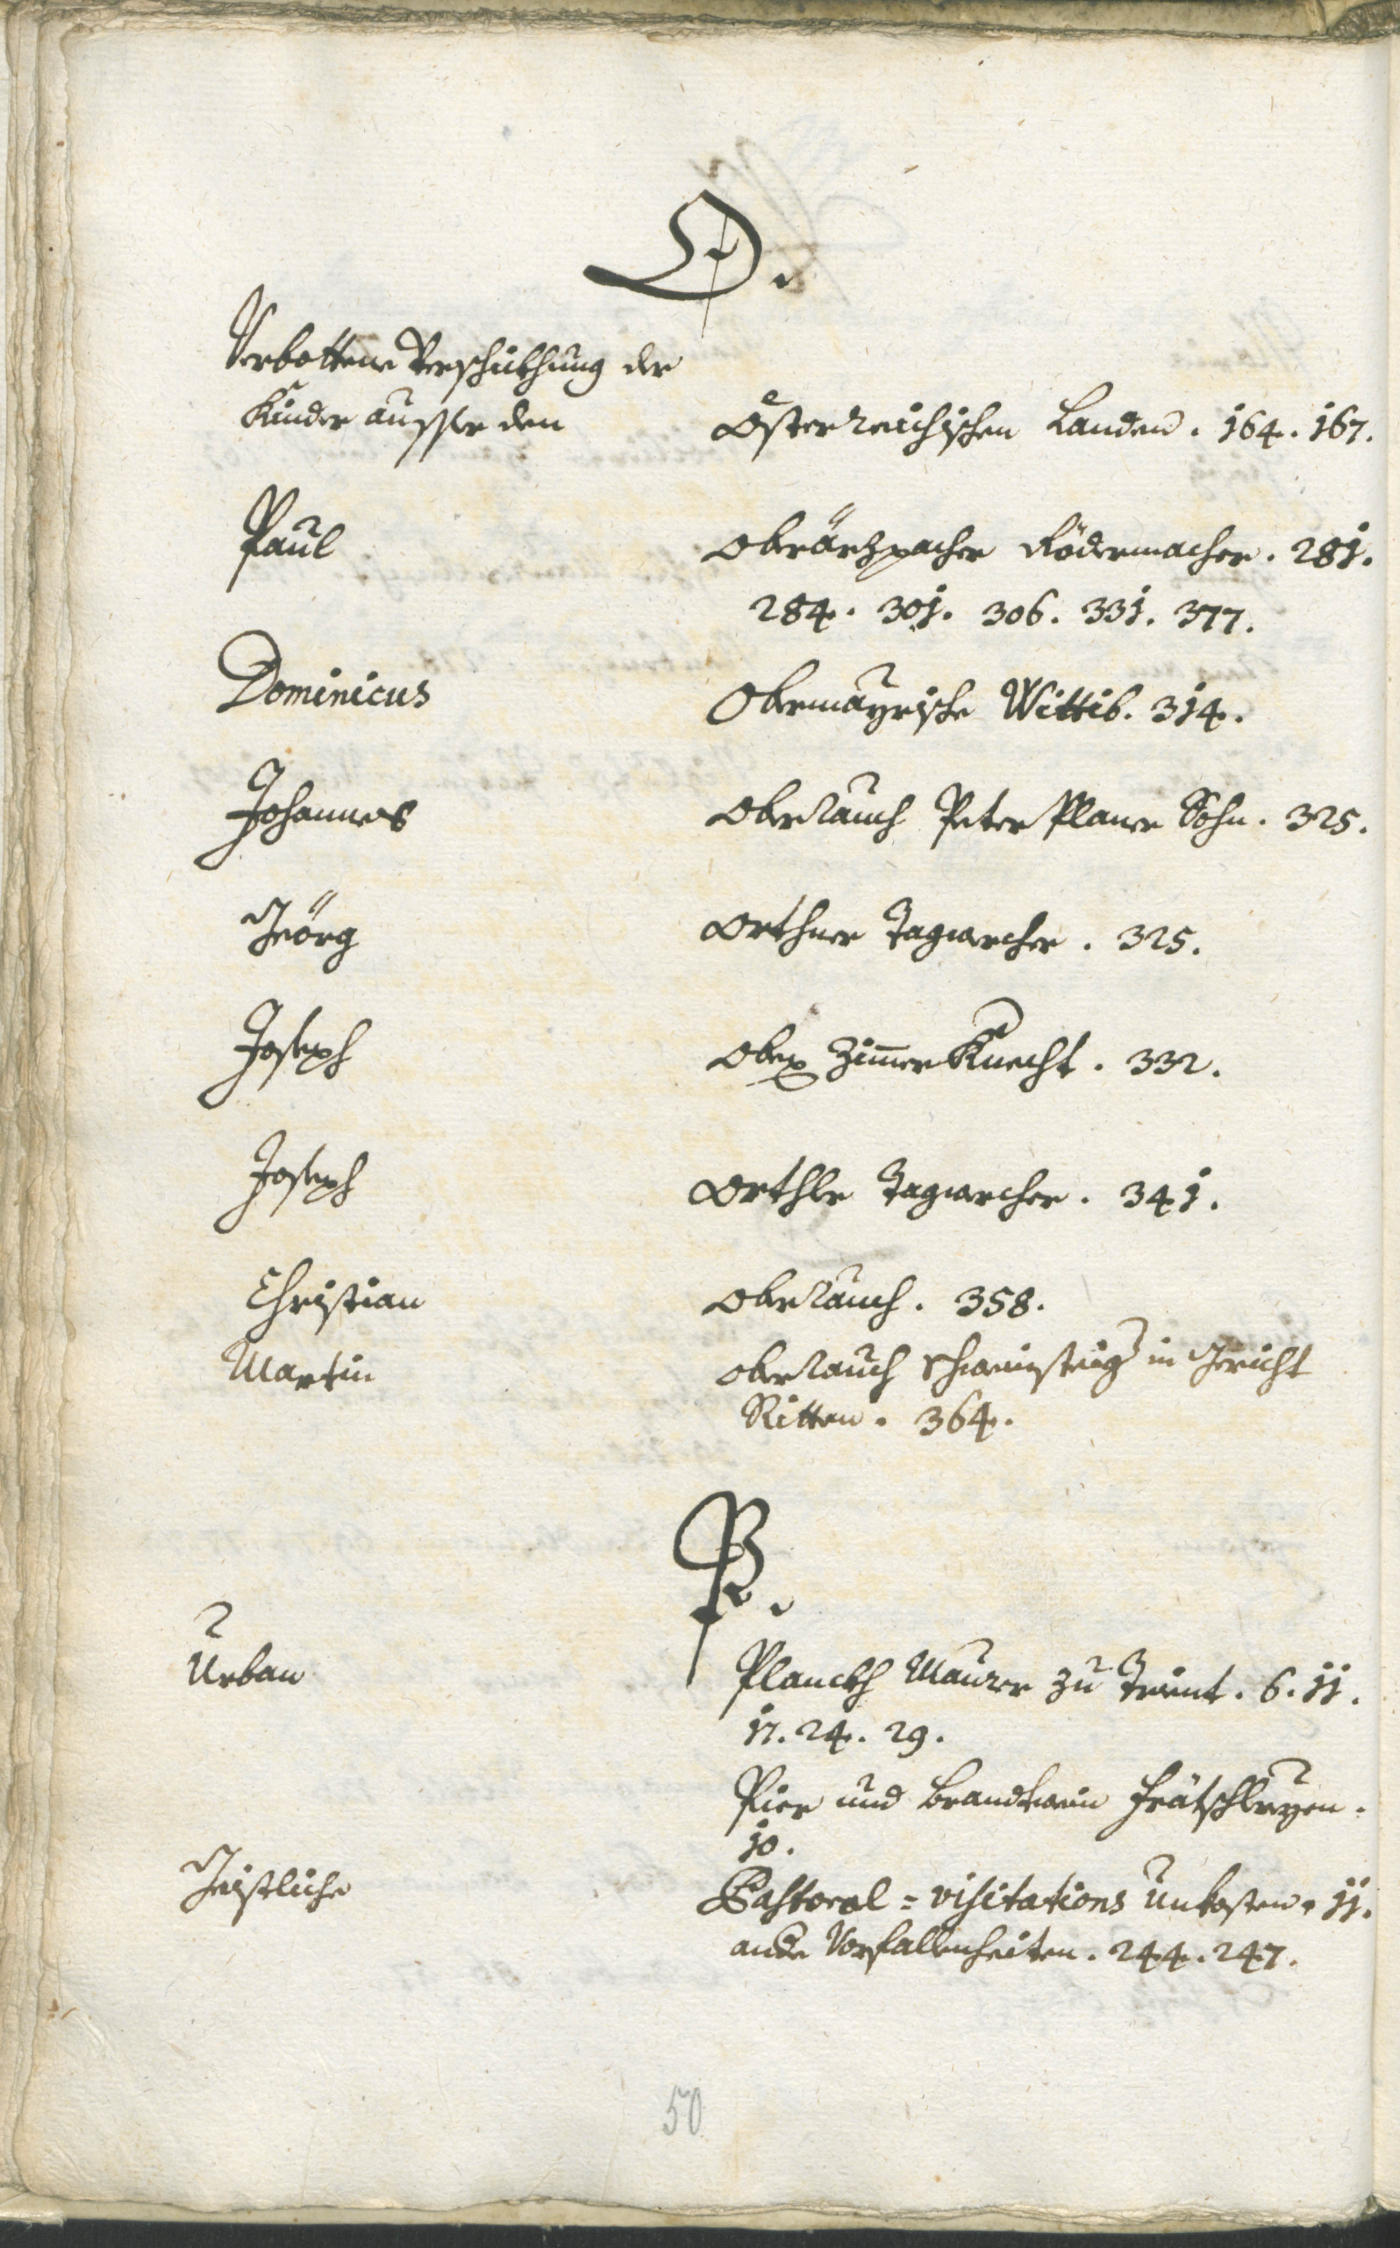 O.
Verbottene Verschükhung der
Kinder ausser den Österreichischen Landen. 164. 167.
Paul Oberärzpacher Rödermacher. 281.
284. 301. 306. 331. 377.
Dominicus Obermayrische Wittib. 314.
Johannes Oberrauch Peter Planer Sohn. 325.
Jeörg Orthner Tagwercher. 325.
Joseph Zimmer Knecht. 332.
Joseph Orthler Tagwercher. 341.
Christian Oberrauch. 358.
Martin Oberrauch Schweinsteiger in Gericht
Ritten. 364.
P.
Urban Planckh Maurer zu Trient. 6. 11.
17. 24. 29.
Pier und Brandtwein Frätschlereyen.
10.
Geistliche Pastoral = visitations Unkosten. 11.
andere Vorfallenheiten. 244. 247.
50